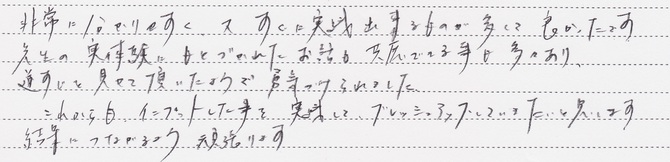 非常に分かりやすく、又 すぐに実践出来るものが多くて 良かったです
先生の実体験にもとづかれたお話も 共感できる事も多々あり、
道すじを見せて頂いたようで 勇気づけられました。
これからも、インプットした事を 実践して、ブレッシュアップしていきたいと思います
結果につながるよう 頑張ります